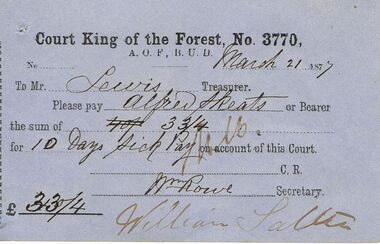 Court King of the Forest, No. 3770,
A. O. F., B. U. D.
No March 21 1877
To Mr. Lewis Treasurer.
Please pay Alfred Skeats or Bearer
the sum of 33/4
for 10 Days Sick Pay on account of this Court.
C. R.
Wm Rowe Secretary.
£ 33/4
William Salter